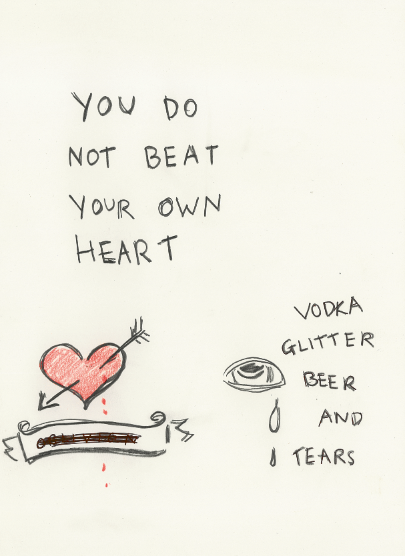 YOU DO
NOT BEAT
YOUR OWN
HEART
VODKA
GLITTER
BEER
AND
TEARS